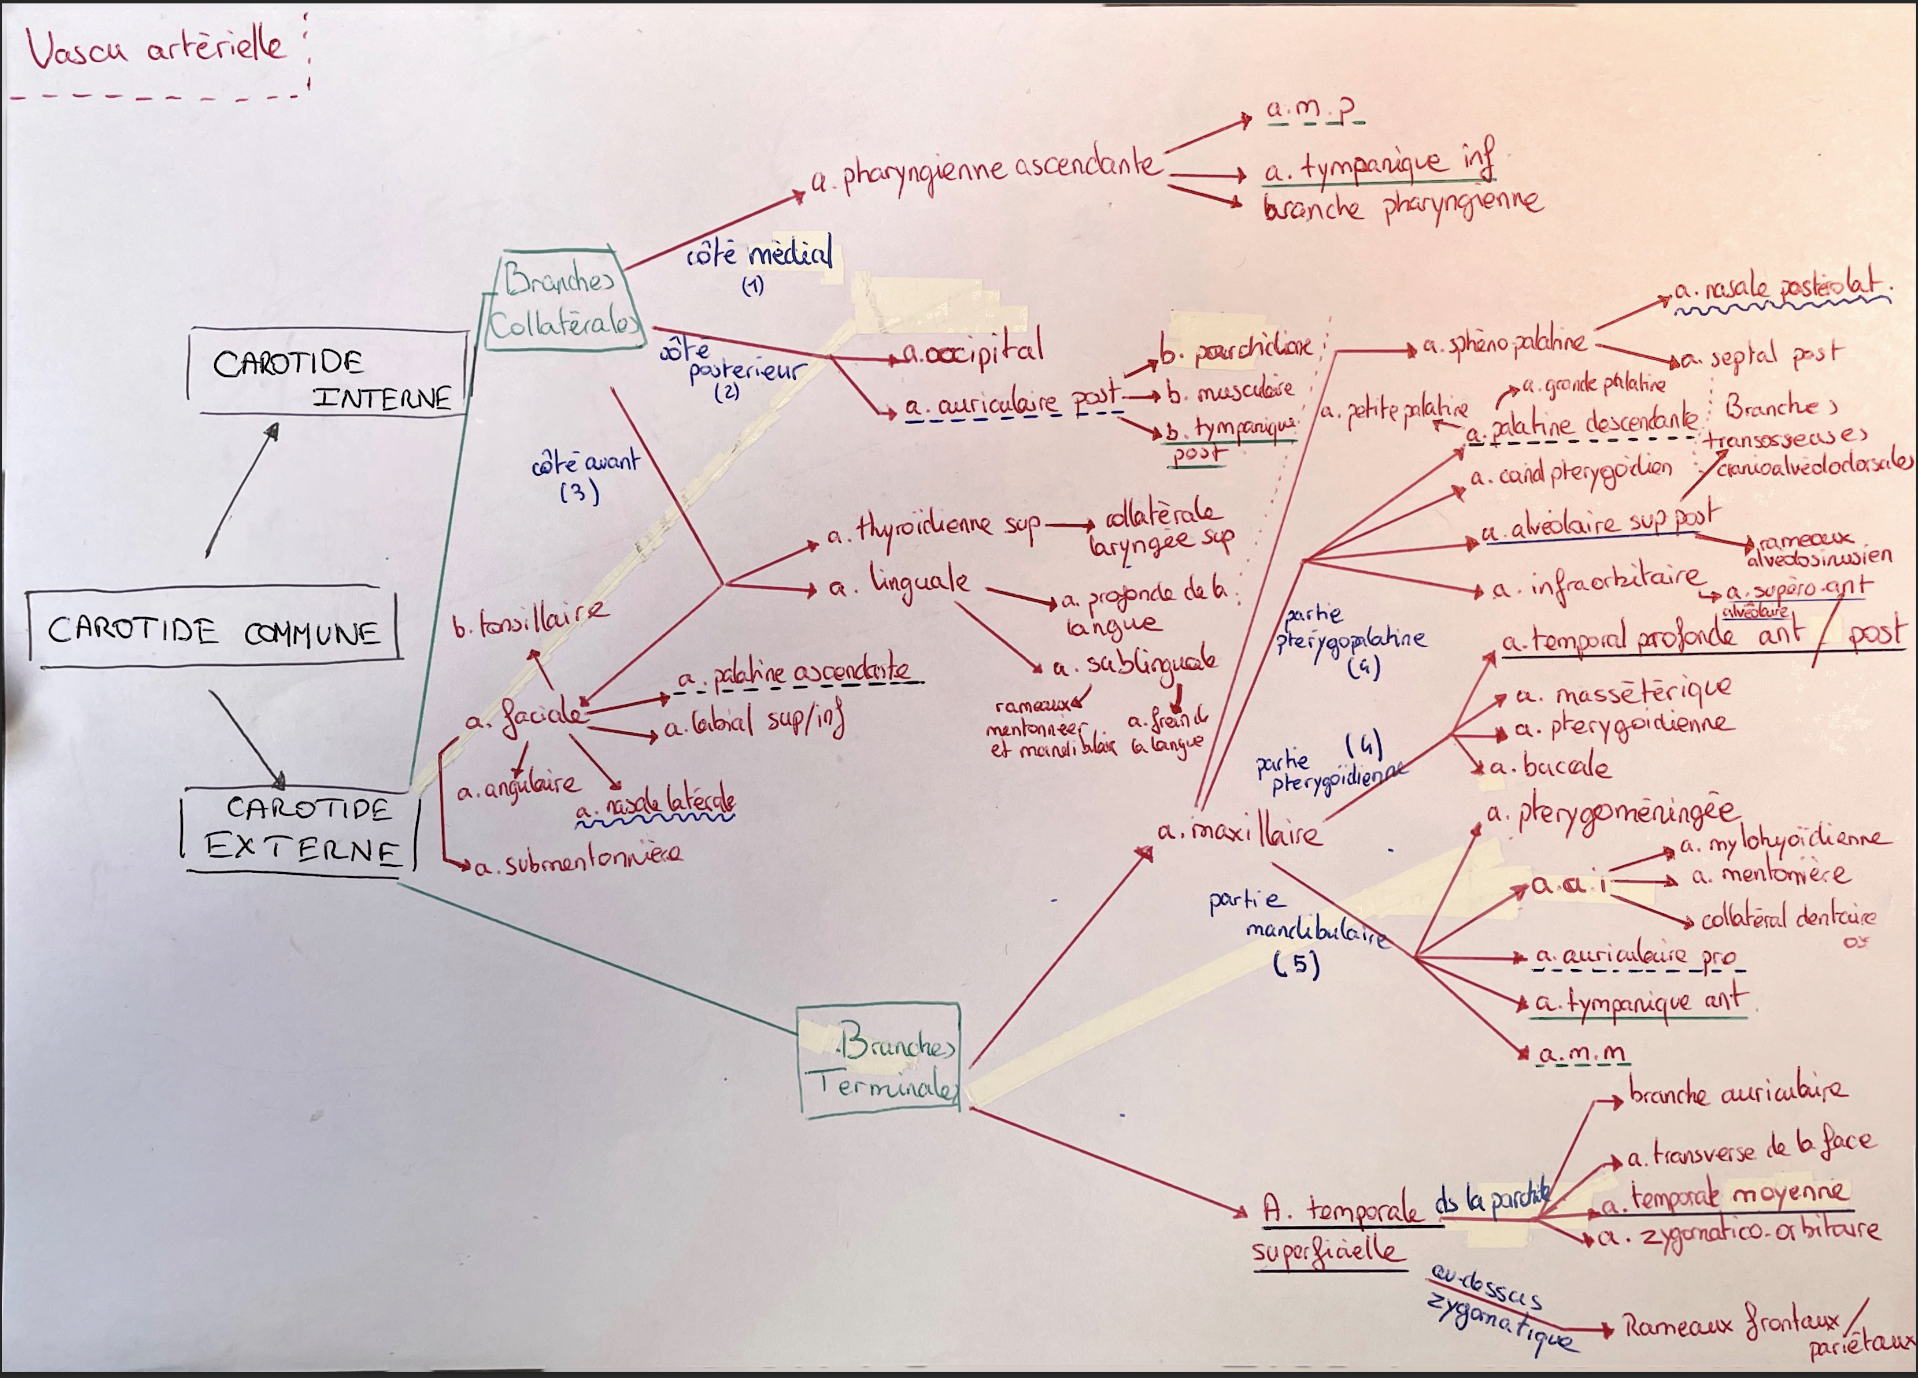 Vascu artérielle
a.m.p
a. pharyngienne ascendante
a. tympanique inf
branche pharyngienne
côté médial
(1)
Branches
Collatérales
CAROTIDE
INTERNE
côté
postérieur
(2)
a.occipital
a. auriculaire post
b. musculaire
b. tympanique
post
a. sphéno palatine
a. nasale postérolat.
a. septal post
a. petite palatine
a. grande palatine
a. palatine descendante
Branches
transosseuses
a. canal pterygoïdien
a. alvéolaire sup post
rameaux
alvéolosinusien
a. infraorbitaire
a. supéro.ant
alvéolaire
côté avant
(3)
a. thyroïdienne sup
collatérale
laryngée sup
a. linguale
a. profonde de la
langue
a. sublinguale
rameaux
a. frein de
la langue
CAROTIDE COMMUNE
b. tonsillaire
a. faciale
a. palatine ascendante
a. labial sup/inf
a. angulaire
a. nasale latérale
a. submentonnière
CAROTIDE
EXTERNE
partie
pterygopalatine
(4)
a. temporal profonde ant / post
a. massétérique
a. pterygoïdienne
a. buccale
partie (4)
pterygoïdienne
a. maxillaire
a. pterygoméningée
a.a.i
a. mylohyoïdienne
a. mentonnière
collatéral dentaire
os
partie
mandibulaire
(5)
a. auriculaire pro
a. tympanique ant
a.m.m
Branches
Terminales
A. temporale
superficielle
ds la parotide
branche auriculaire
a. transverse de la face
a. temporale moyenne
a. zygomatico-orbitaire
au-dessus
zygomatique
Rameaux frontaux /
pariétaux